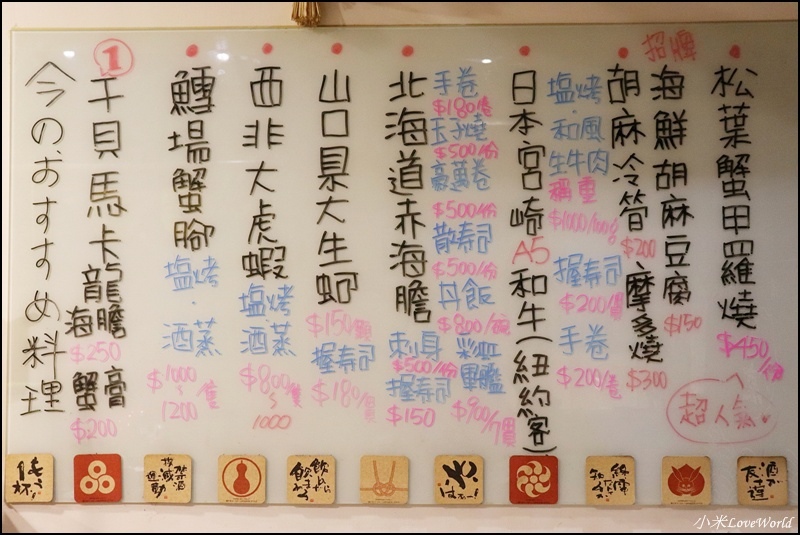 招牌
松葉蟹甲羅燒
$450/份
超人氣
海鮮胡麻豆腐
$150
胡麻冷管
$200
、摩多燒
$300
日本宮崎A5和牛(紐約客)
塩烤
・和風
生牛肉
稱重
$1000/100g
握壽司
$200/個
手卷
$200/卷
北海道赤海膽
手卷
$180/卷
玉子燒
$500/份
豪邁卷
$500/份
散壽司
$500/份
丹飯
$800/碗
刺身
$500/份
握壽司
$150
彩虹
軍艦
$900/個
山口県大生蚵
$150/顆
握壽司
$180/個
西非大虎蝦
塩烤
・
酒蒸
$800/隻
~
1000
鱈場蟹腳
塩烤
・
酒蒸
$1000/隻
~
1200
①
干貝馬卡龍
海膽
$250
蟹膏
$200
今のおすすめ料理
小米LoveWorld